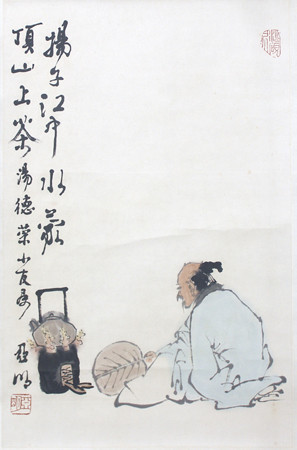 揚子江中水蒙
頂山上茶 湯德榮小友
亞明